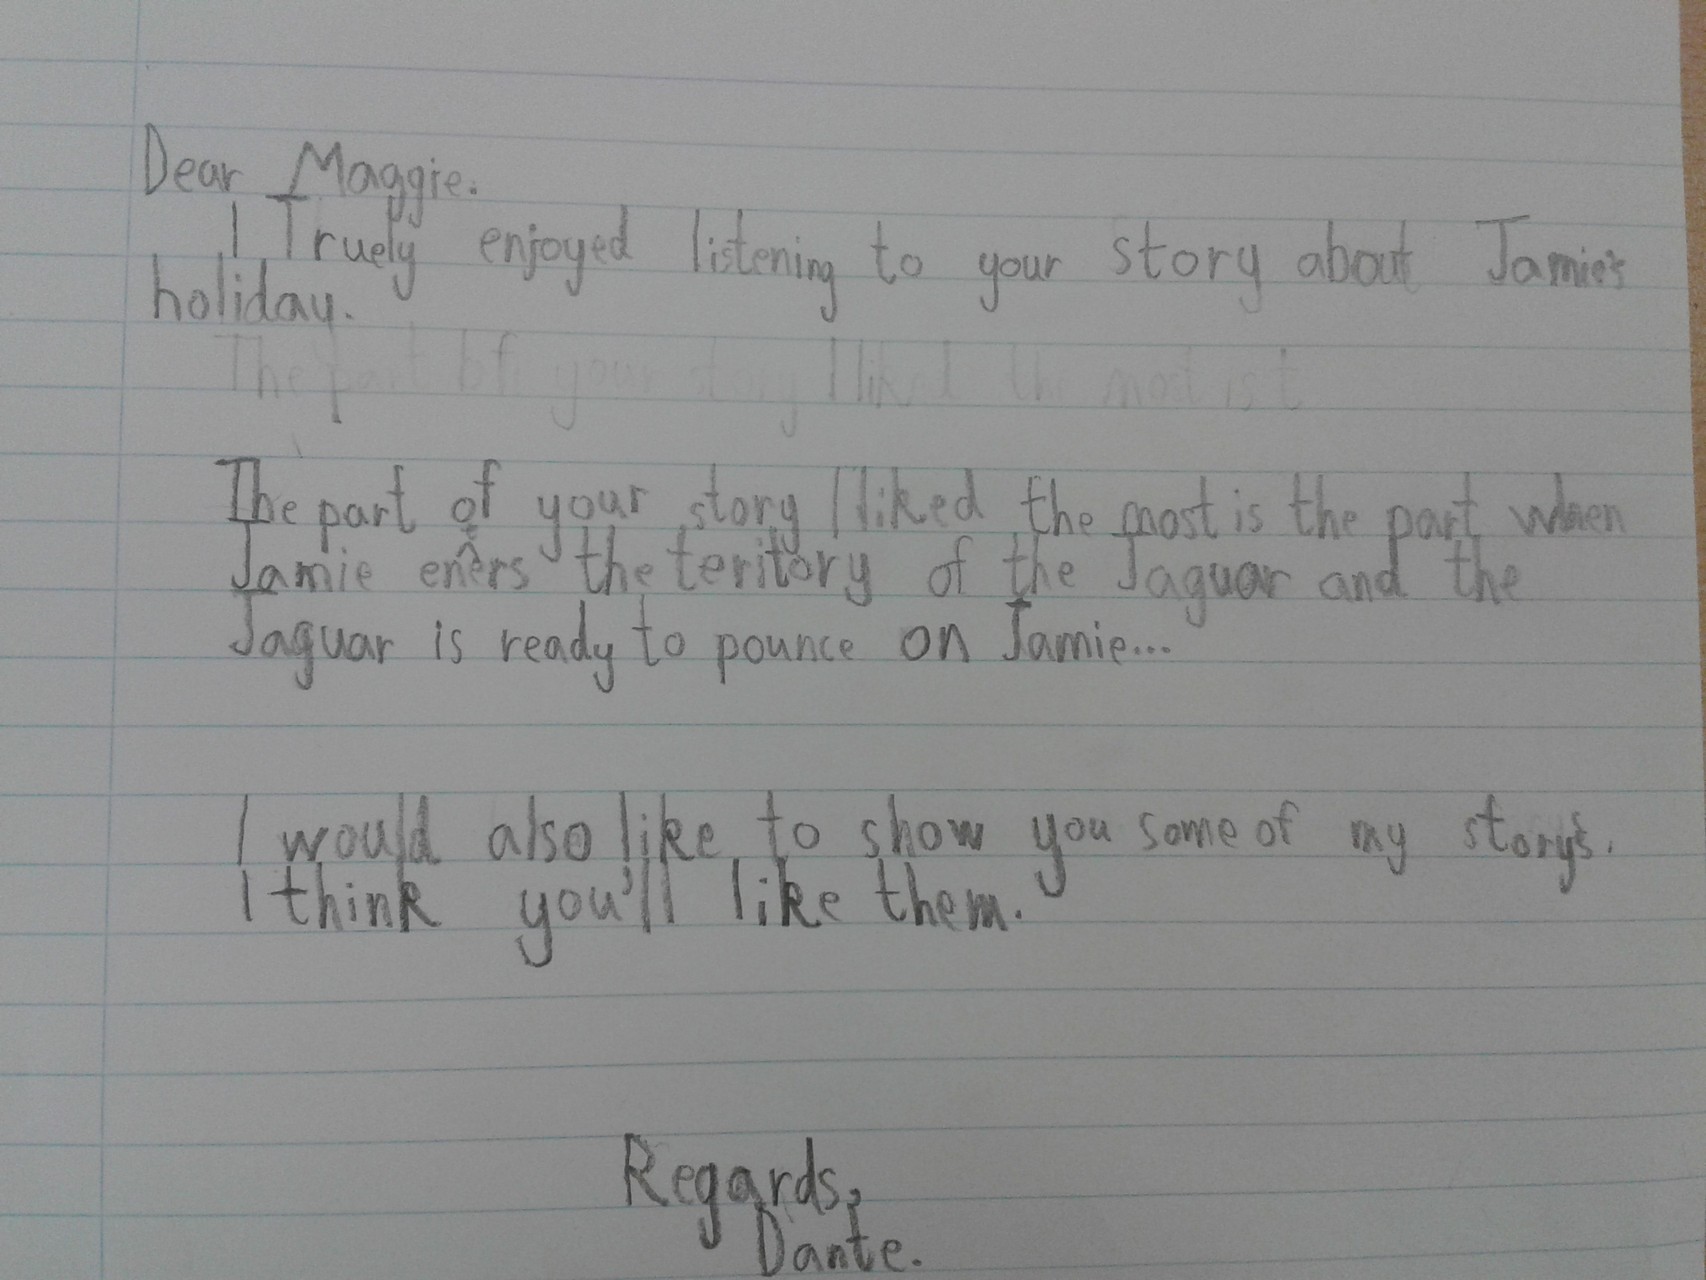 Dear Maggie.
I Truely enjoyed listening to your story about Jamie's
holiday.
The part of your story I liked the most is t
The part of your story I liked the most is the part when
Jamie eners the teritory of the Jaguar and the
Jaguar is ready to pounce on Jamie...
I would also like to show you some of my story's.
I think you'll like them.
Regards,
Dante.